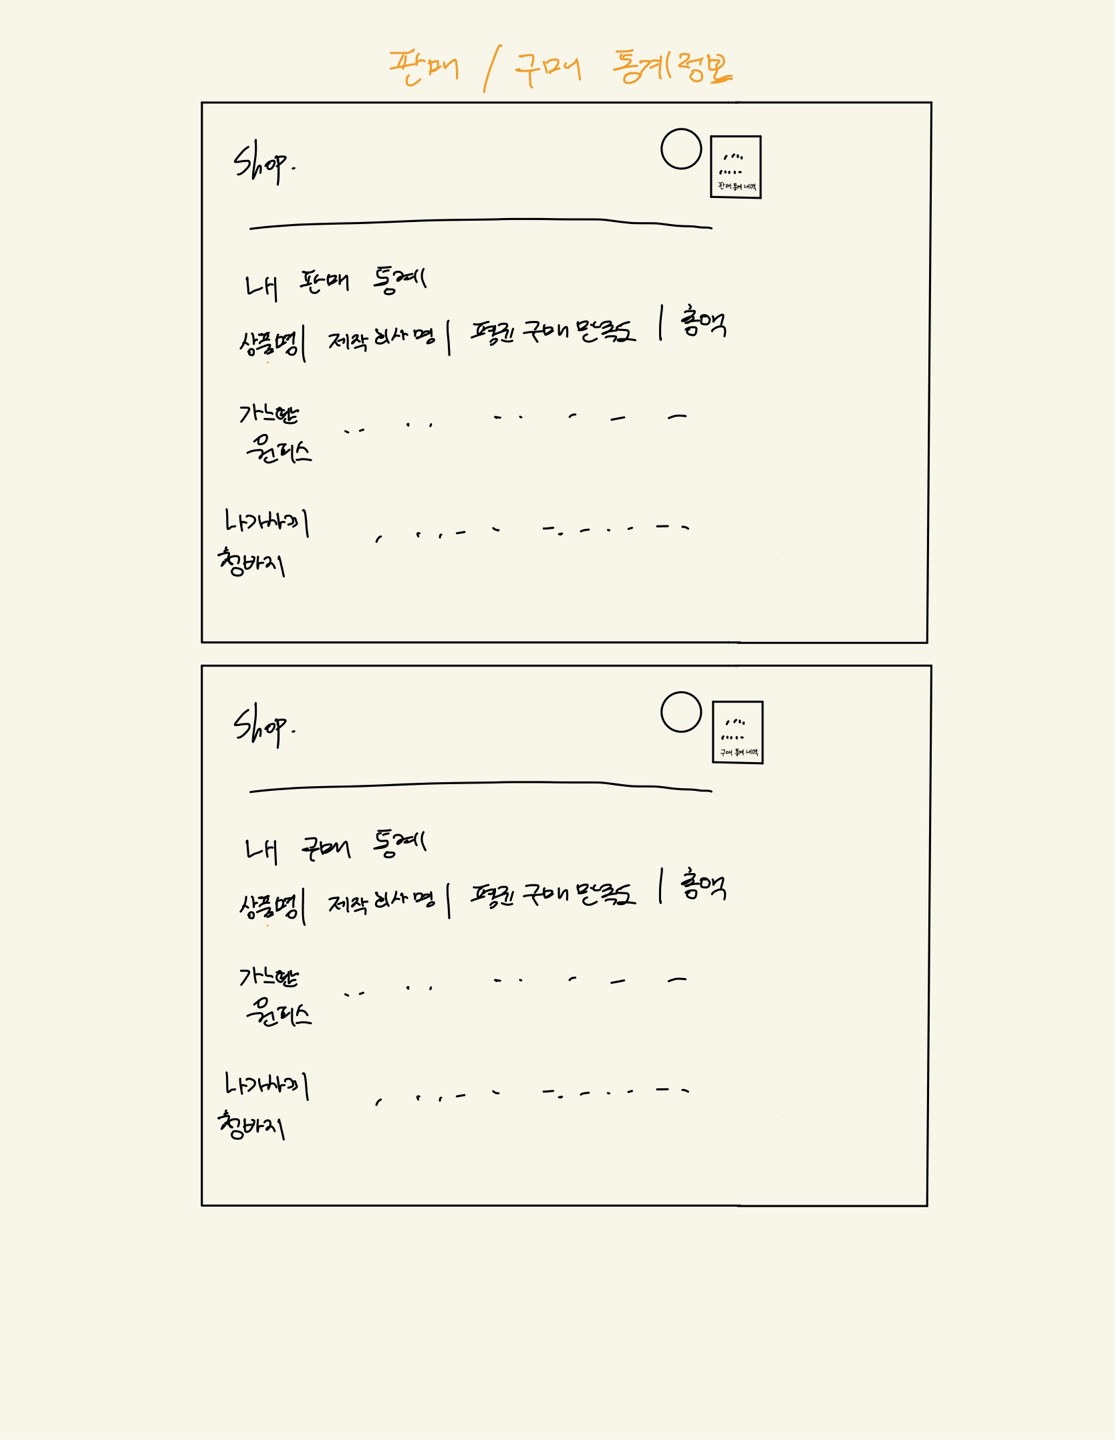 판매 / 구매 통계정보
Shop.
판매 통계 내역
내 판매 통계
상품명| 제작 회사 명| 평균 구매 만족도 | 총액
가느란
원피스
나가사끼
청바지
Shop.
구매 통계 내역
내 구매 통계
상품명| 제작 회사 명| 평균 구매 만족도 | 총액
가느란
원피스
나가사끼
청바지